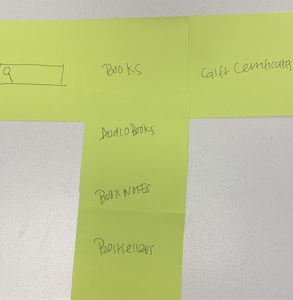 Books
Gift Certificate
AUDIOBOOKS
BOOKNOTES
Bestsellers